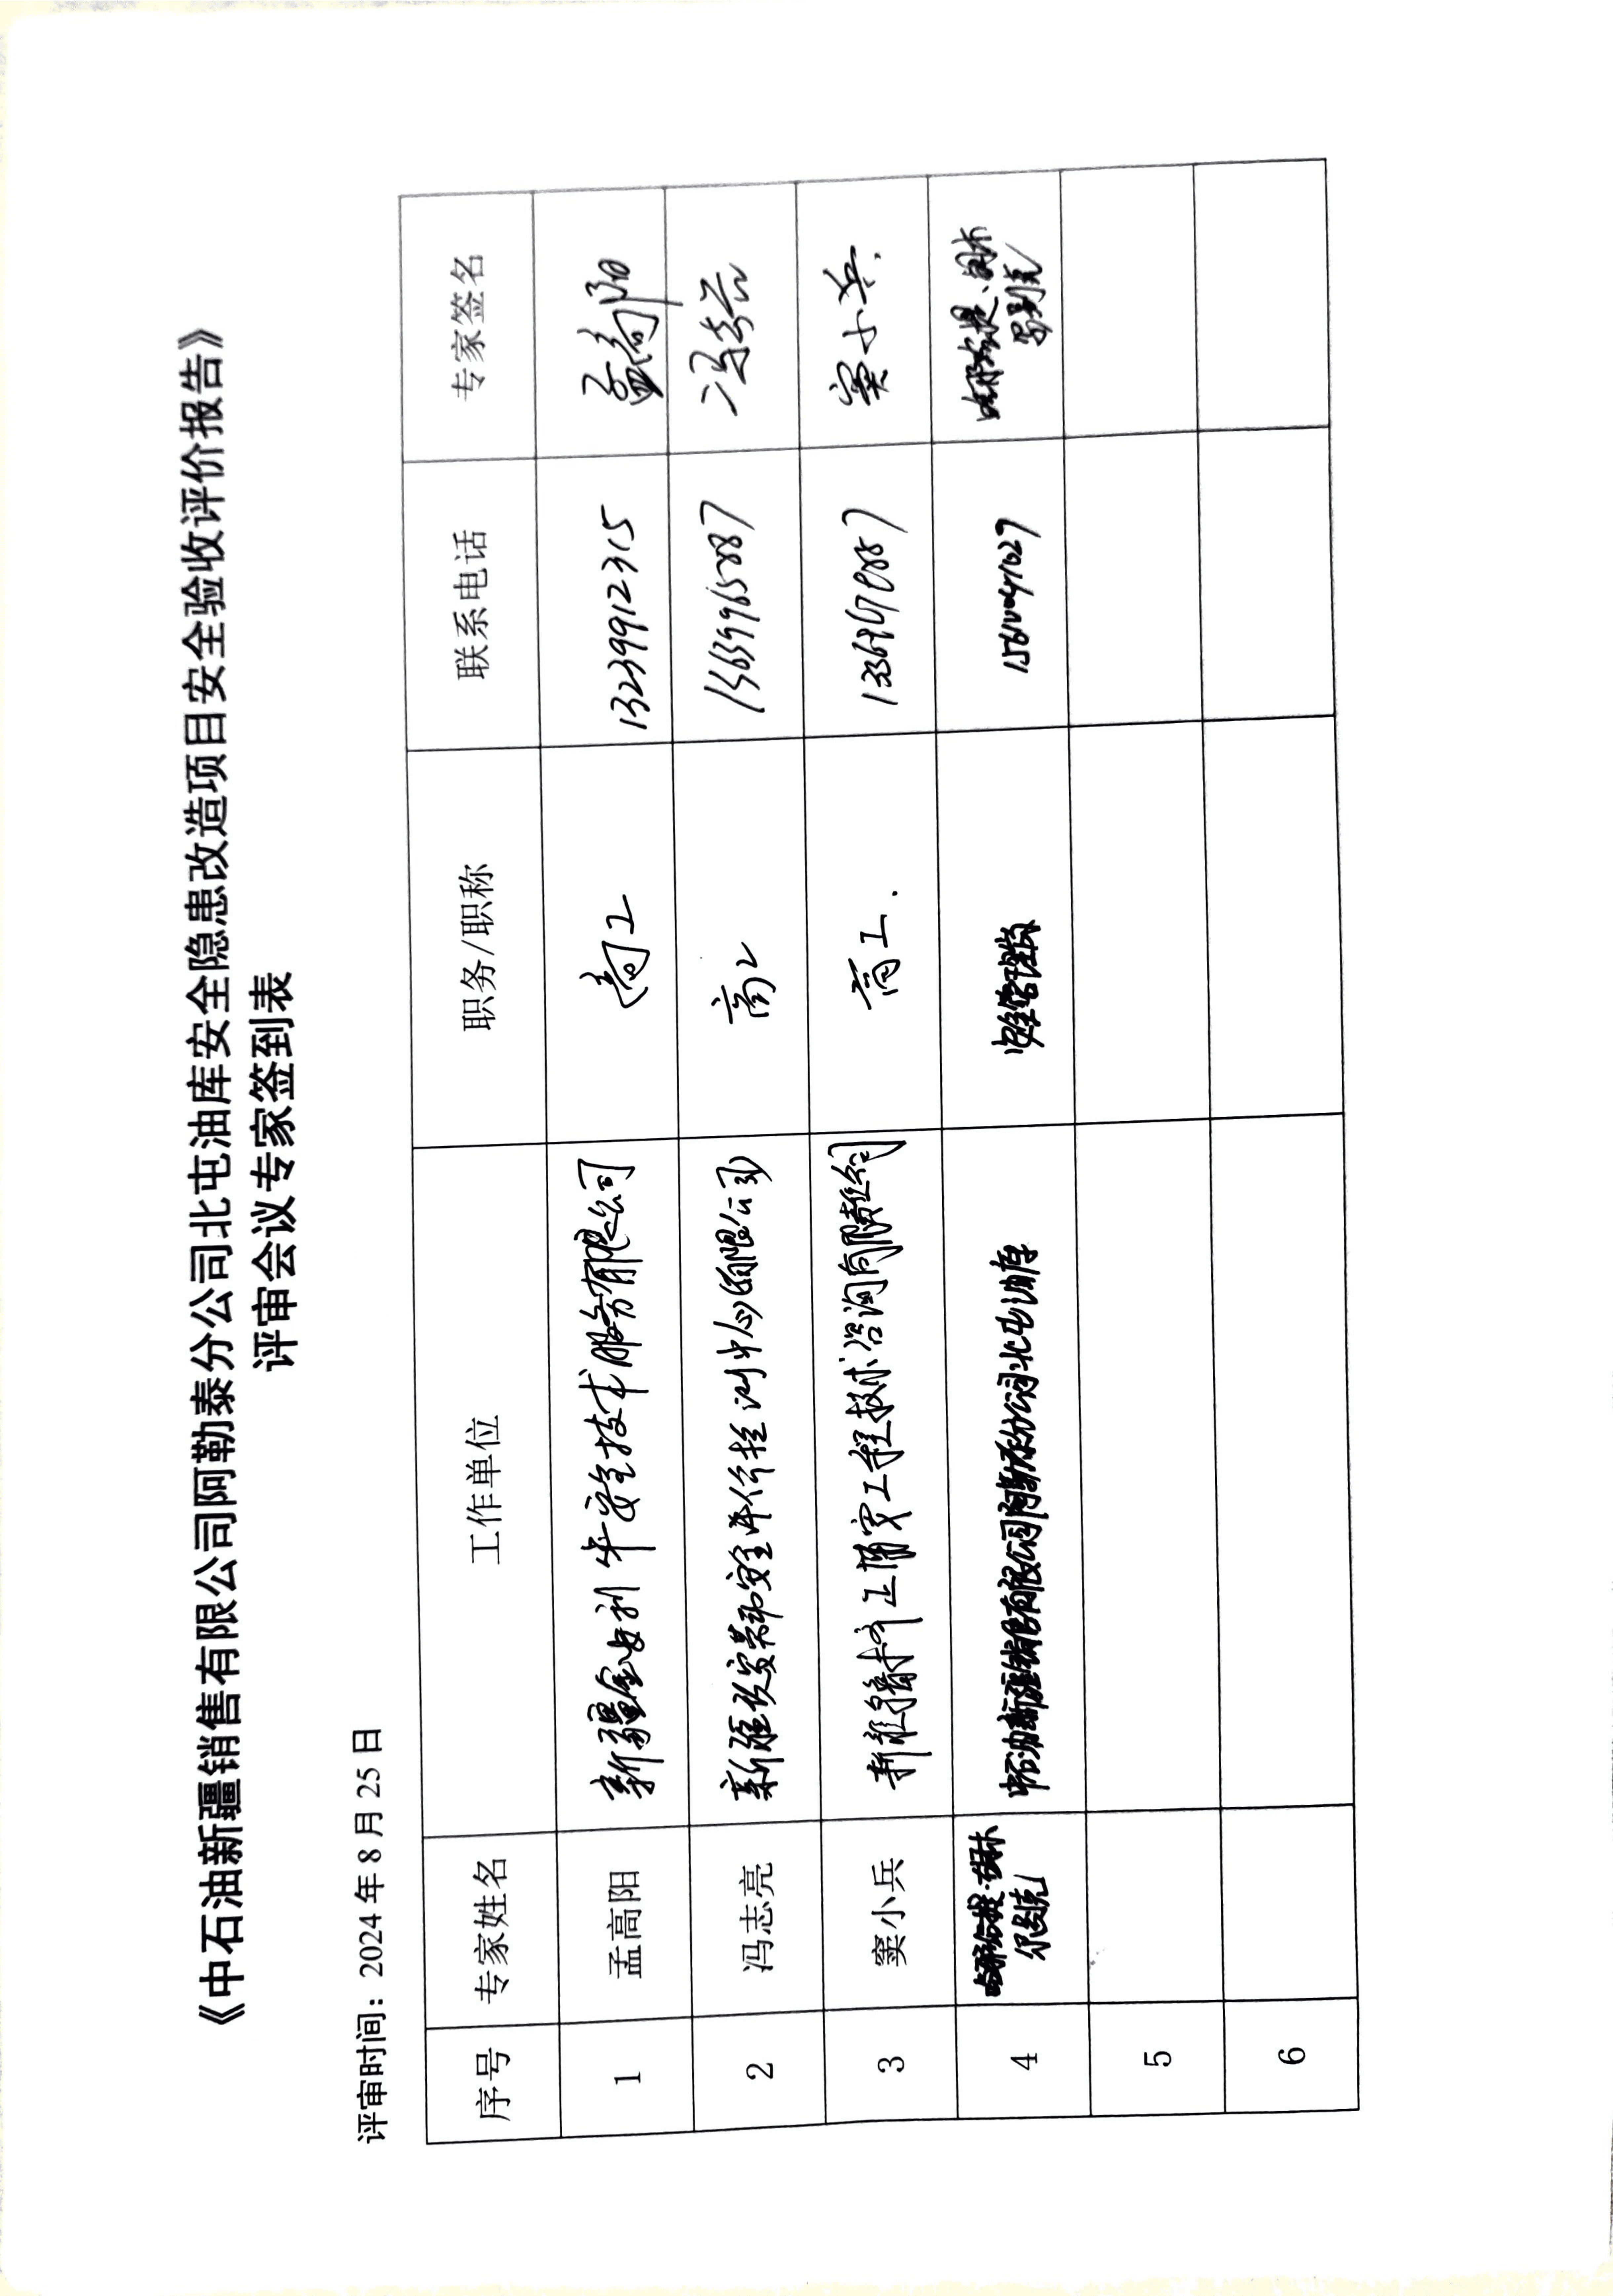 《中石油新疆销售有限公司阿勒泰分公司北屯油库安全隐患改造项目安全验收评价报告》
评审会议专家签到表
评审时间：2024年8月25日
序号 专家姓名 工作单位 职务/职称 联系电话 专家签名
1 孟高阳 新疆金安利华安全技术服务有限公司 高工 13239912315 孟高阳
2 冯志亮 安全评价检测中心(有限公司) 高工 冯志亮
3 窦小兵 工程技术咨询有限责任公司 高工. 窦小兵.
4 中石油新疆销售有限公司阿勒泰分公司北屯油库
5
6